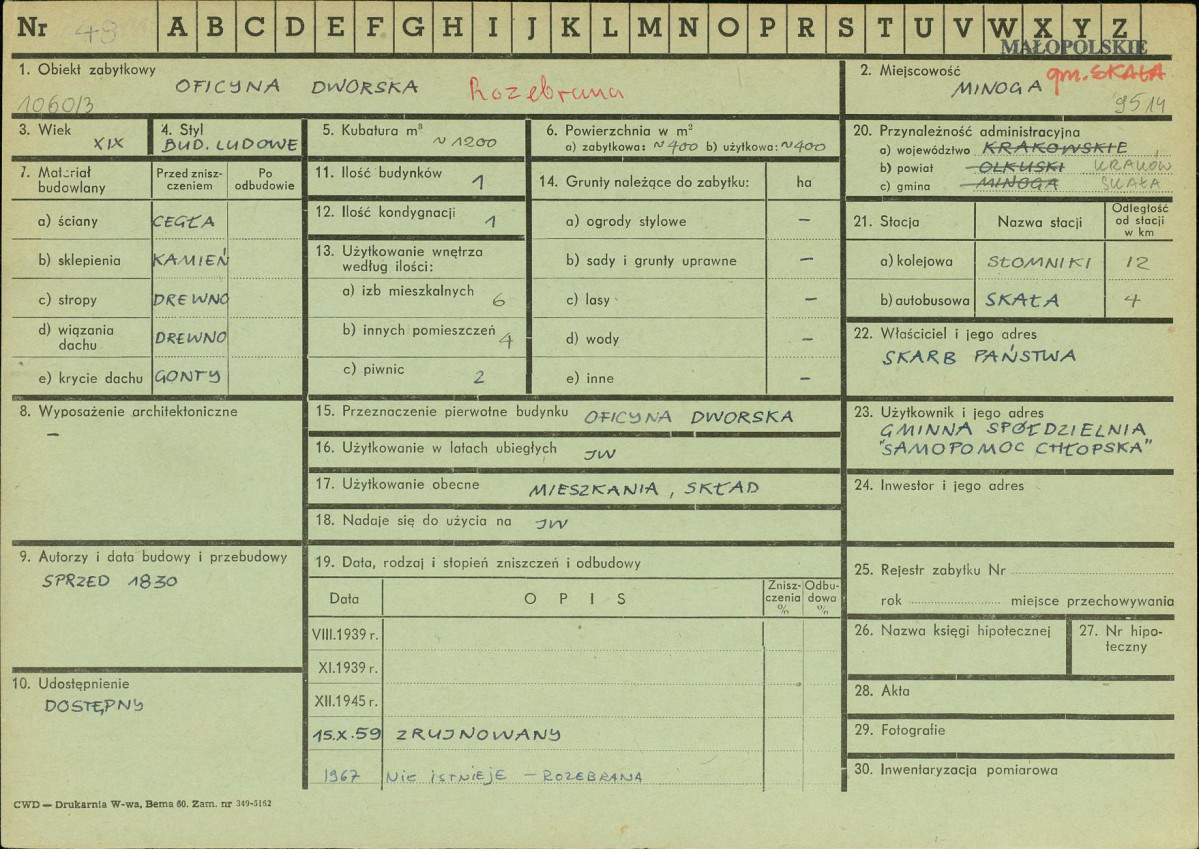 Nr 48 A B C D E F G H I J K L M N O P R S T U V W X Y Z
MAŁOPOLSKIE
1. Obiekt zabytkowy
OFICYNA DWORSKA Rozebrana
1060/3
2. Miejscowość gm. SKAŁA
MINOGA
9514
3. Wiek
XIX
4. Styl
BUD. LUDOWE
5. Kubatura m³
~ 1200
6. Powierzchnia w m²
a) zabytkowa: ~400 b) użytkowa: ~400
20. Przynależność administracyjna
a) województwo KRAKOWSKIE
b) powiat OLKUSKI KRAKÓW
c) gmina MINOGA SKAŁA
7. Materiał budowlany
Przed zniszczeniem
Po odbudowie
a) ściany CEGŁA
b) sklepienia KAMIEŃ
c) stropy DREWNO
d) wiązania dachu DREWNO
e) krycie dachu GONTY
11. Ilość budynków 1
12. Ilość kondygnacji 1
13. Użytkowanie wnętrza
według ilości:
a) izb mieszkalnych 6
b) innych pomieszczeń 4
c) piwnic 2
14. Grunty należące do zabytku: ha
a) ogrody stylowe –
b) sady i grunty uprawne –
c) lasy –
d) wody –
e) inne –
21. Stacja Nazwa stacji Odległość od stacji w km
a) kolejowa SŁOMNIKI 12
b) autobusowa SKAŁA 4
22. Właściciel i jego adres
SKARB PAŃSTWA
8. Wyposażenie architektoniczne
–
15. Przeznaczenie pierwotne budynku OFICYNA DWORSKA
16. Użytkowanie w latach ubiegłych JW
17. Użytkowanie obecne MIESZKANIA, SKŁAD
18. Nadaje się do użycia na JW
23. Użytkownik i jego adres
GMINNA SPÓŁDZIELNIA
"SAMOPOMOC CHŁOPSKA"
24. Inwestor i jego adres
9. Autorzy i data budowy i przebudowy
SPRZED 1830
19. Data, rodzaj i stopień zniszczeń i odbudowy
Data OPIS Zniszczenia % Odbudowa %
VIII.1939 r.
XI.1939 r.
XII.1945 r.
15.X.59 ZRUJNOWANY
1967 Nie istnieje – ROZEBRANA
10. Udostępnienie
DOSTĘPNY
25. Rejestr zabytku Nr
rok miejsce przechowywania
26. Nazwa księgi hipotecznej
27. Nr hipoteczny
28. Akta
29. Fotografie
30. Inwentaryzacja pomiarowa
CWD — Drukarnia W-wa, Bema 60. Zam. nr 349-5162